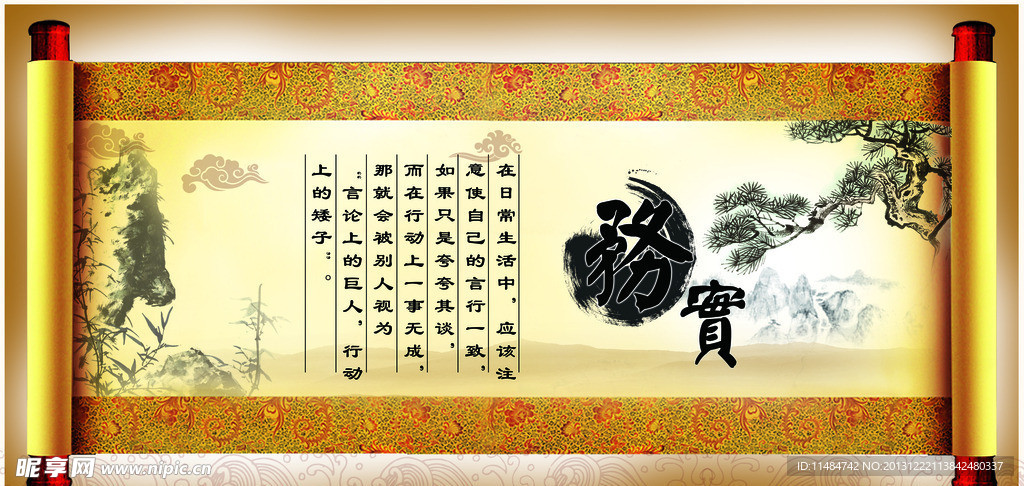 務
實
在日常生活中，应该注
意使自己的言行一致，
如果只是夸夸其谈，
而在行动上一事无成，
那就会被别人视为
“言论上的巨人，行动
上的矮子”。
昵享网 www.nipic.cn
ID:11484742 NO:20131222113842480337